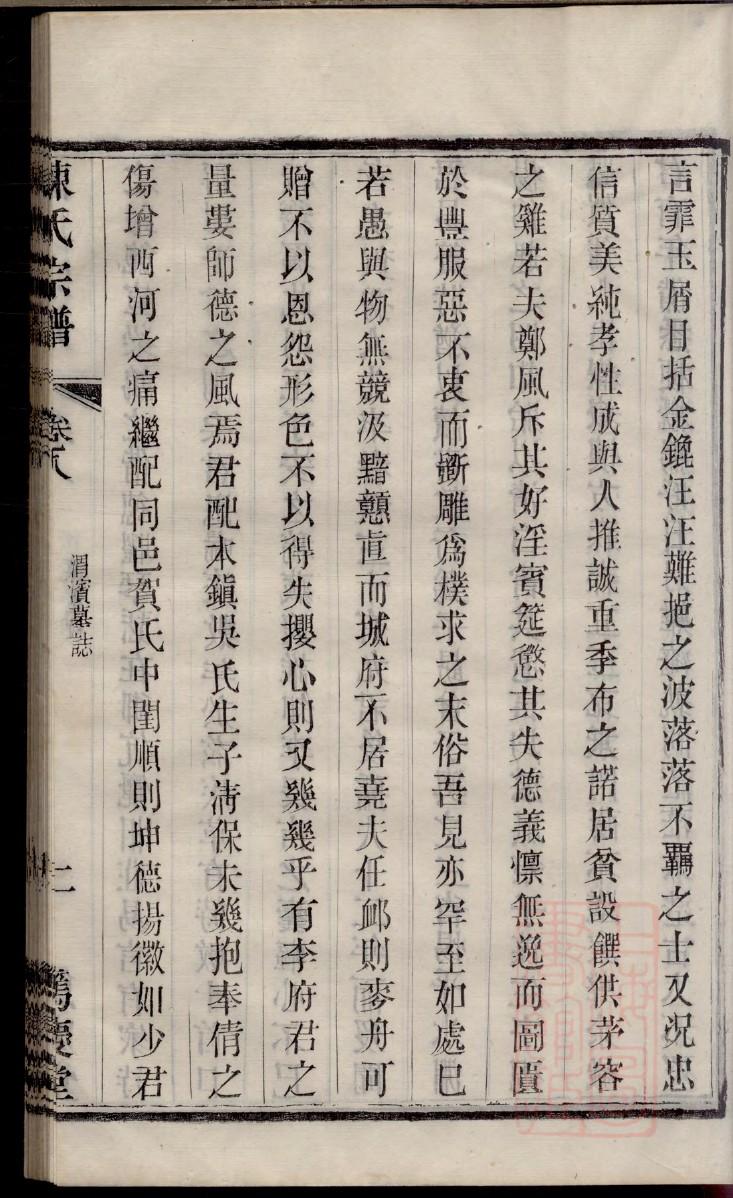 言霏玉屑目括金鎞汪汪難挹之波落落不羈之士又況忠
信質美純孝性成與人推誠重季布之諾居貧設饌供茅容
之雞若夫鄭風斥其好淫賓筵愆其失德義懍無逸而圖匱
於豐服惡不衷而斵雕爲樸求之末俗吾見亦罕至如處已
若愚與物無競汲黯戇直而城府不居堯夫任卹則麥舟可
贈不以恩怨形色不以得失攖心則又幾幾乎有李府君之
量婁師德之風焉君配本鎭吳氏生子淸保未幾抱奉倩之
傷增西河之痛繼配同邑賀氏中閨順則坤德揚徽如少君
陳氏宗譜
卷八
渭濱墓誌
二
篤慶堂